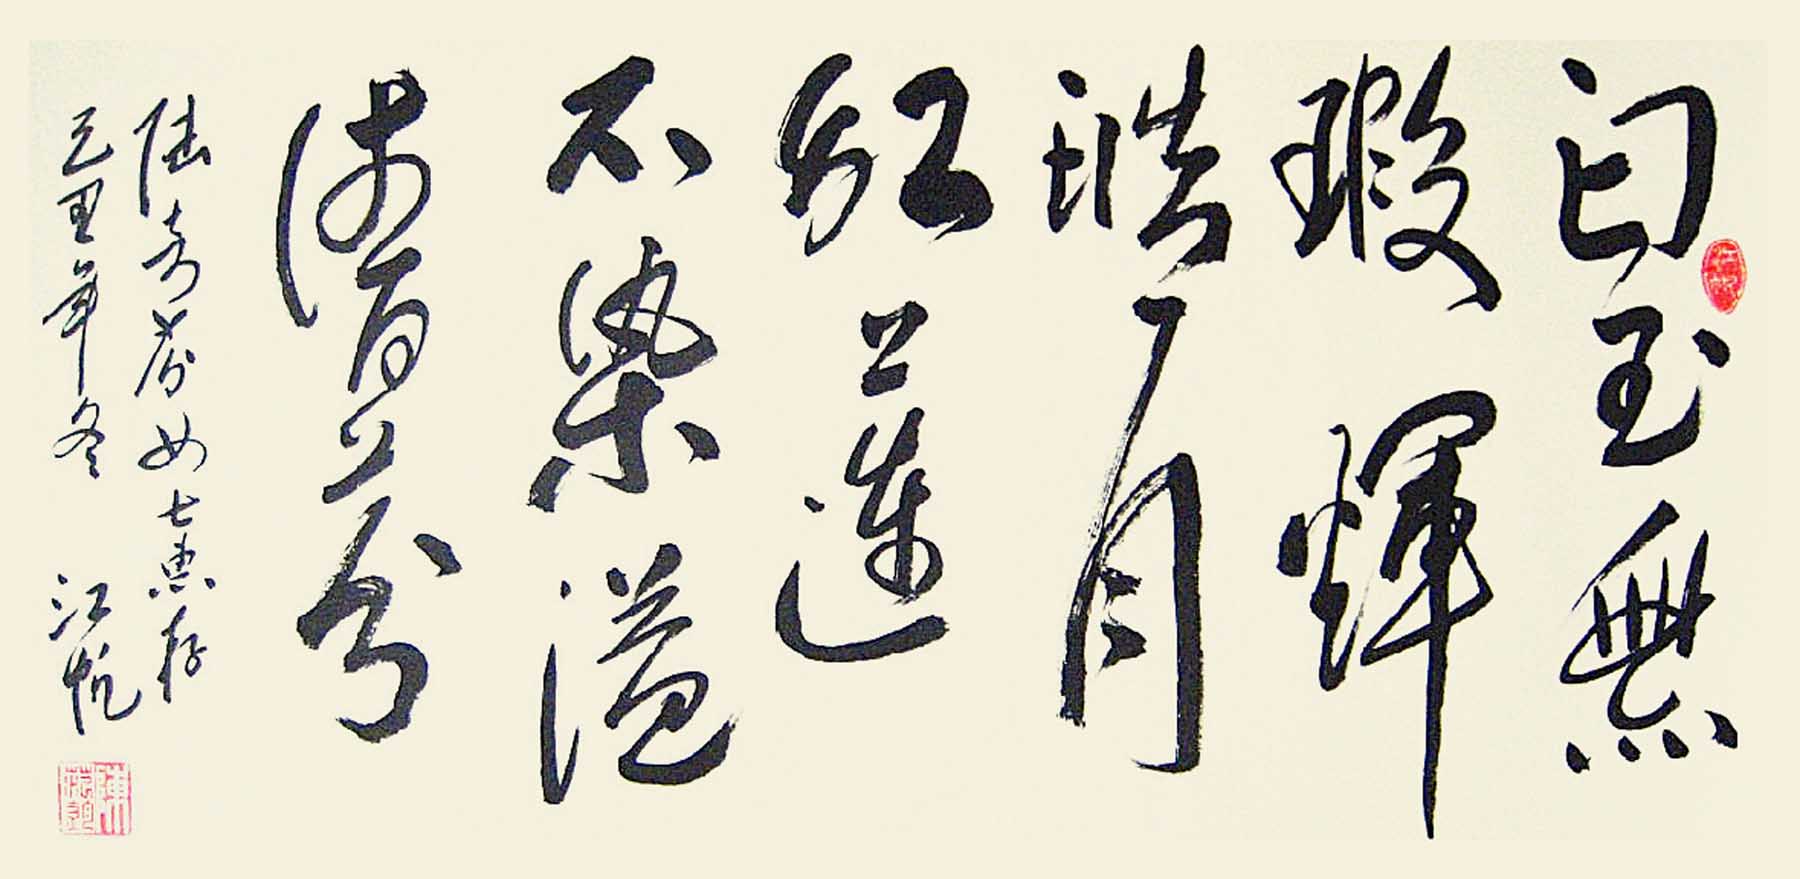 白玉無
瑕輝
皓月
紅蓮
不染溢
清芬
陸奇芬女士惠存
己丑年冬 江